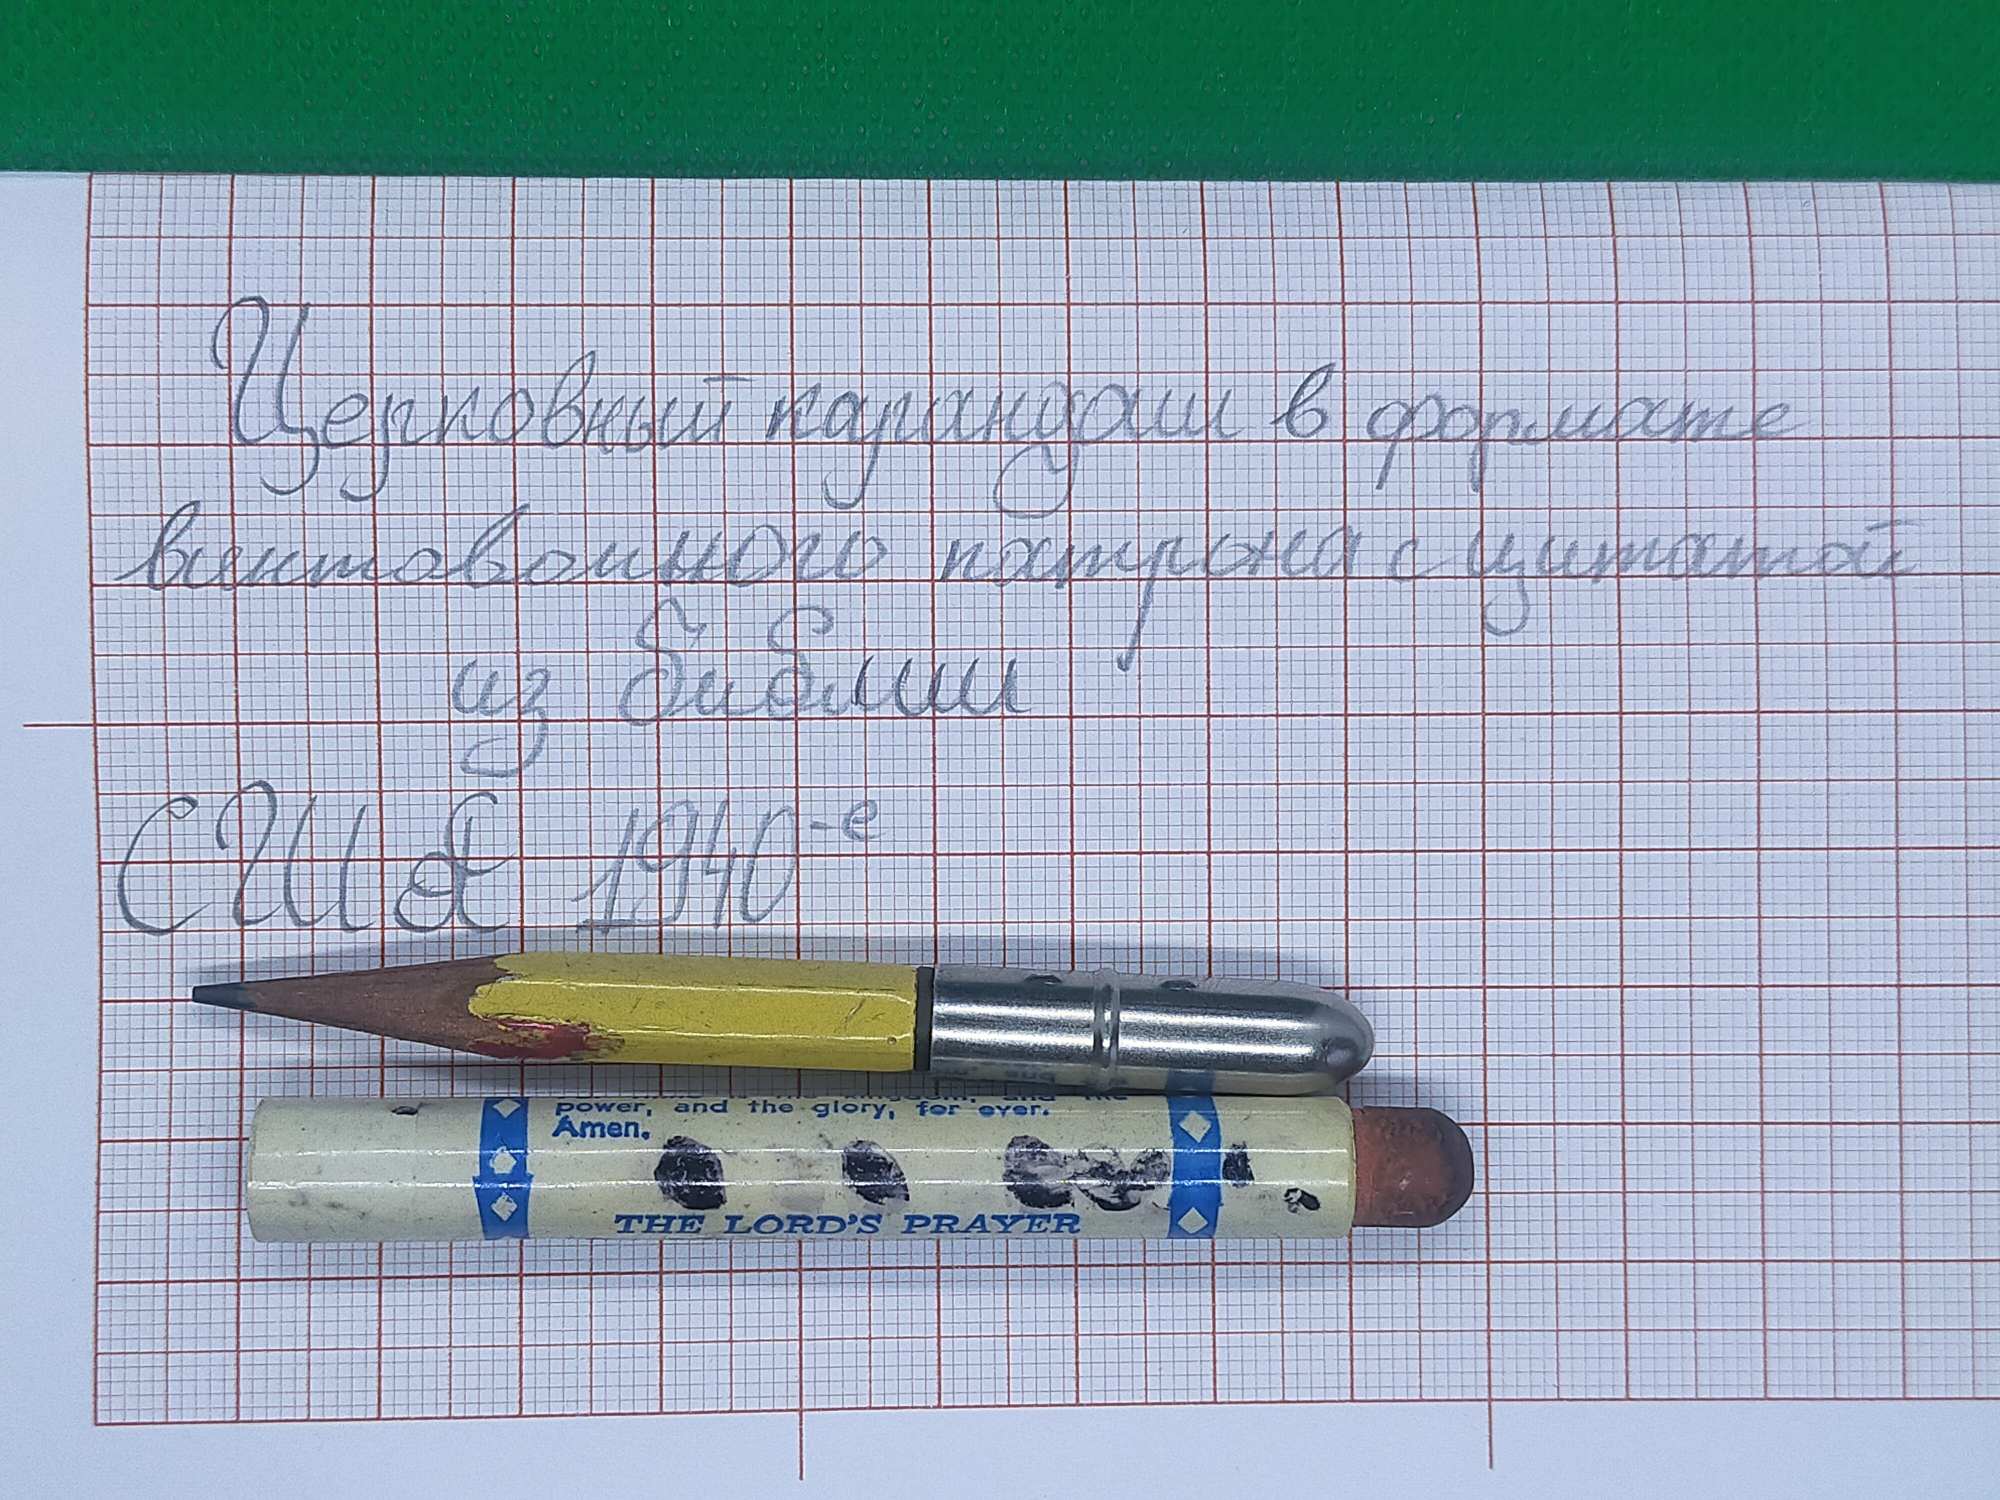 Церковный карандаш в формате
винтовочного патрона с цитатой
из библии
США 1940-е
power, and the glory, for ever.
Amen.
THE LORD'S PRAYER